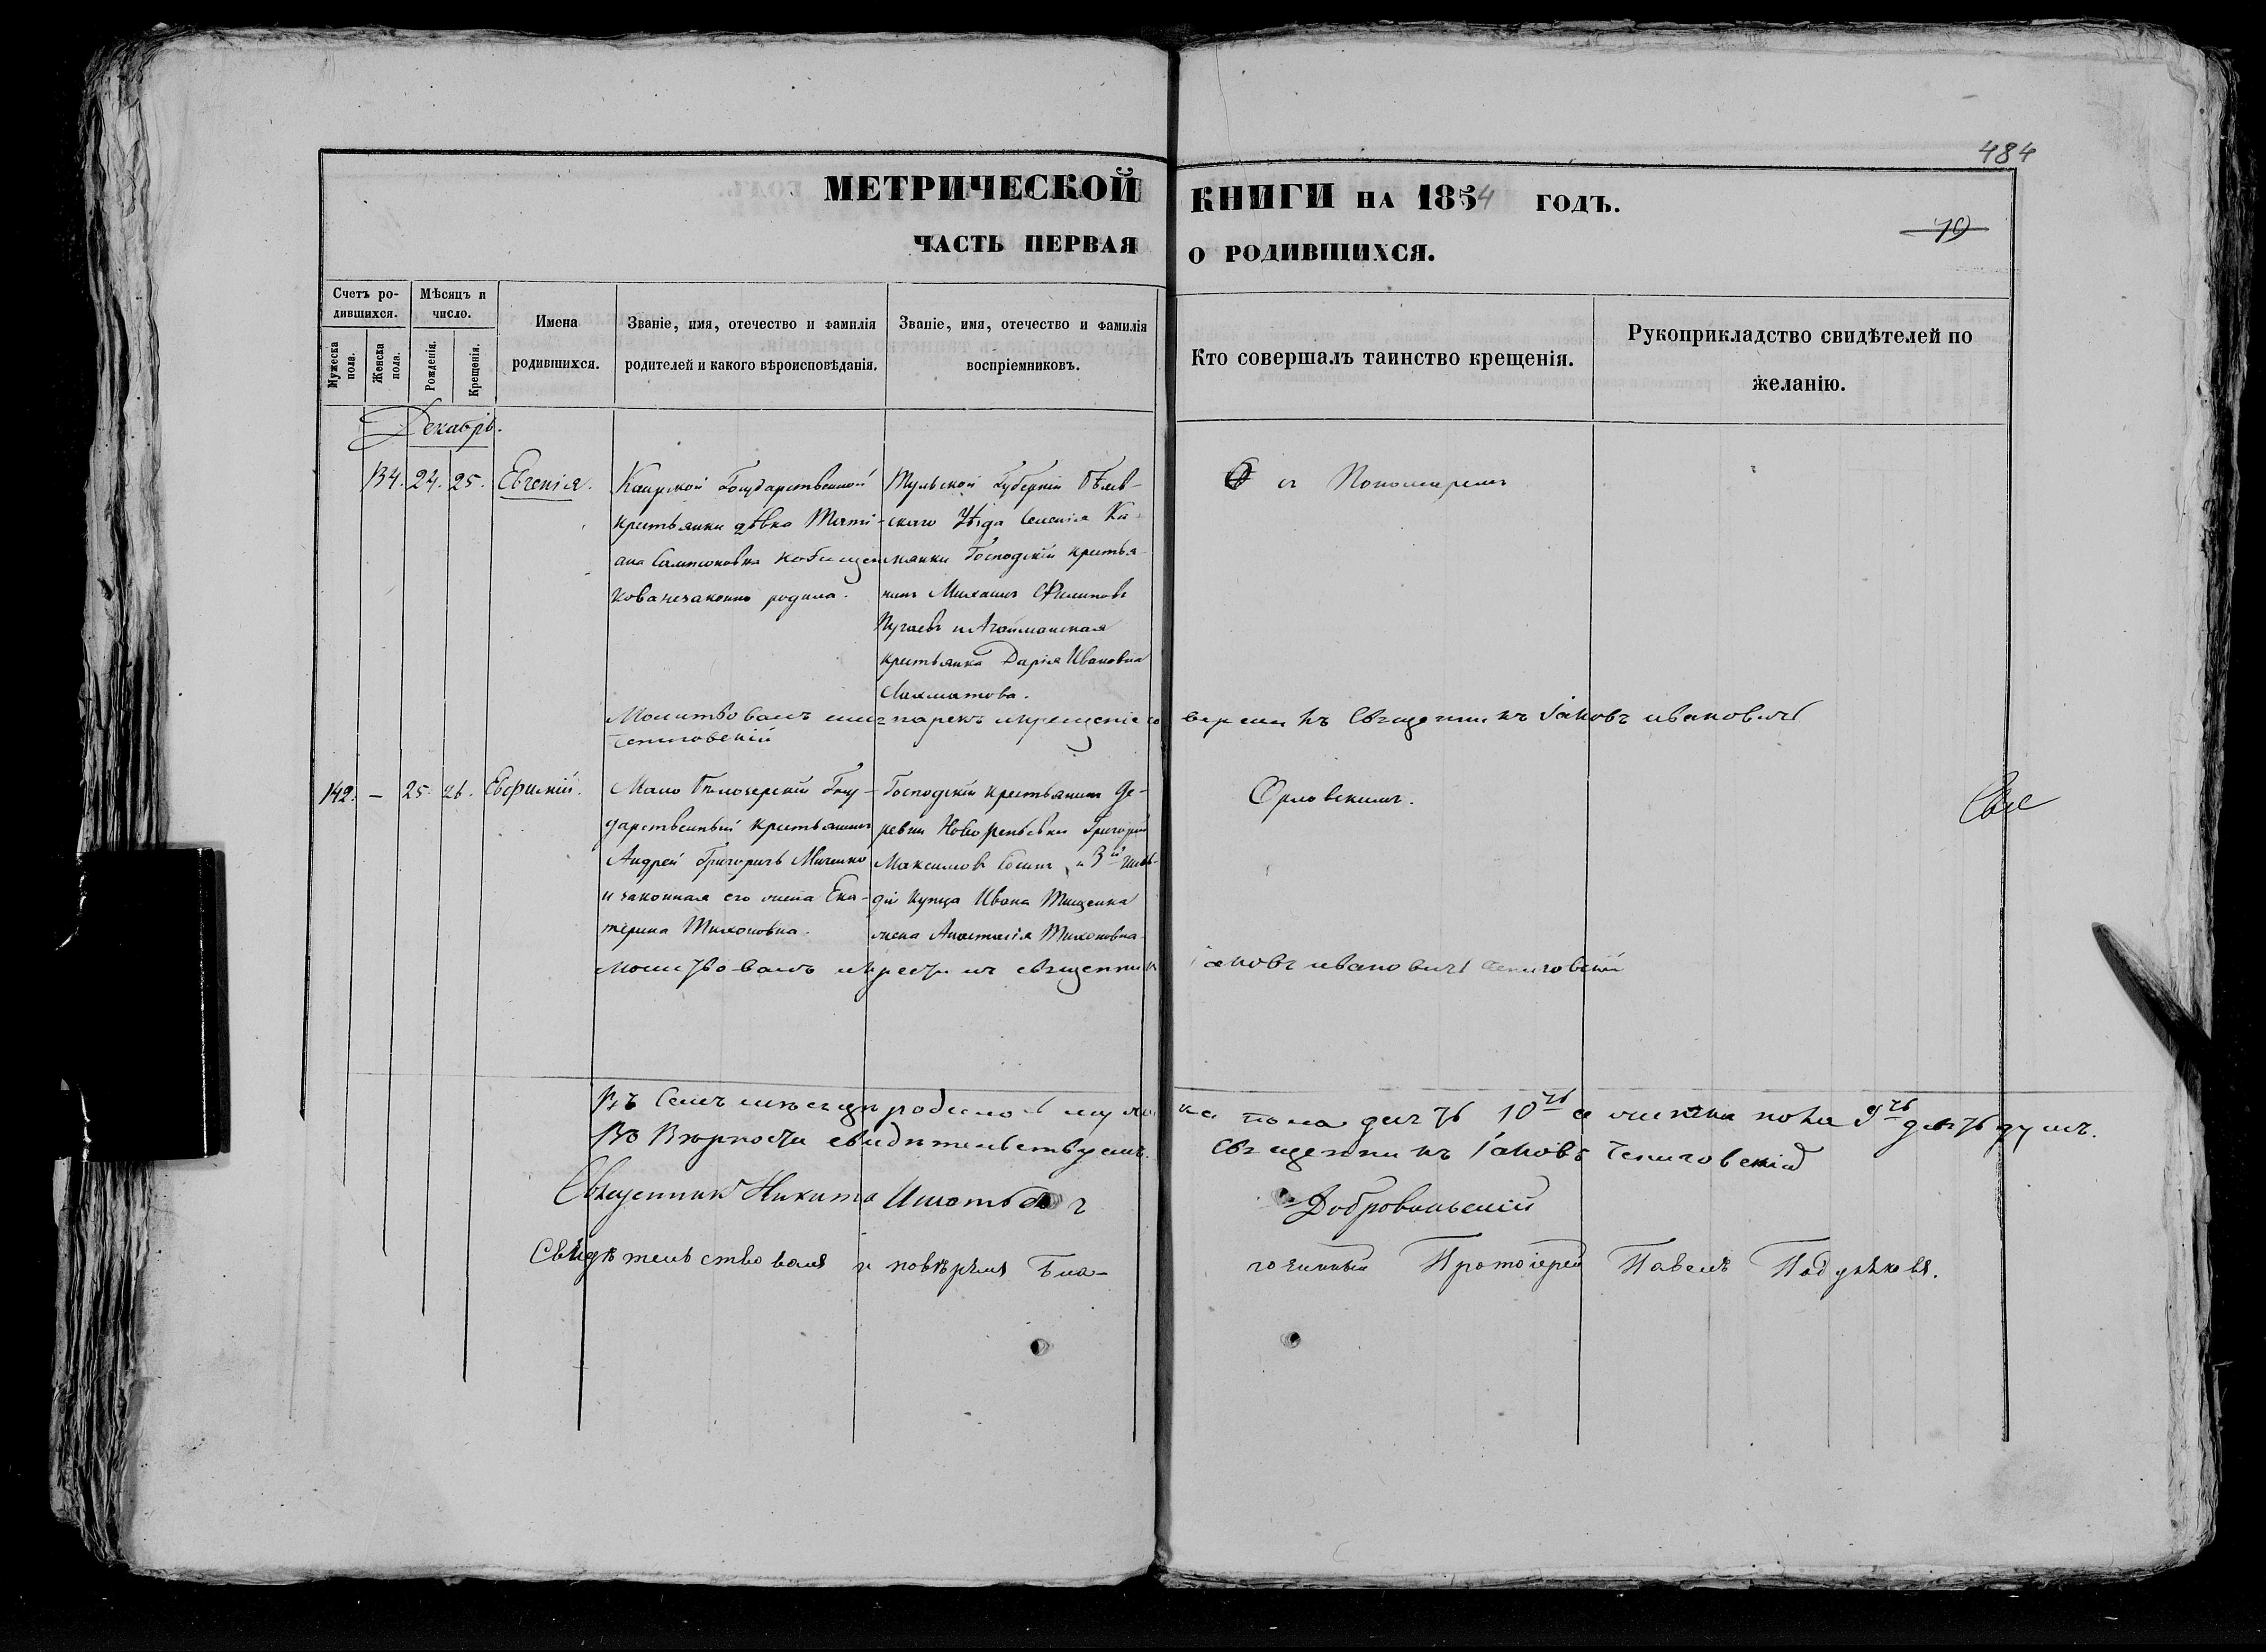 484
МЕТРИЧЕСКОЙ КНИГИ НА 1854 ГОДЪ.
79
ЧАСТЬ ПЕРВАЯ О РОДИВШИХСЯ.
Счетъ родившихся.
Мужеска пола.
Женска пола.
Мѣсяцъ и число.
Рожденія.
Крещенія.
Имена родившихся.
Званіе, имя, отечество и фамилія родителей и какого вѣроисповѣданія.
Званіе, имя, отечество и фамилія воспріемниковъ.
Кто совершалъ таинство крещенія.
Рукоприкладство свидѣтелей по желанію.
Декабрь.
134. 24. 25. Евгенія.
Каирской Государственной
крестьянки дѣвка Тати-
ана Сампсоновна
незаконно родила.
Тульской Губерніи Бѣлев-
скаго Уѣзда Селенія
Господскій крестья-
нинъ Михаилъ Филиповъ
Пугаевъ и Агайманская
крестьянка Дарія Ивановна
Лахматова.
съ Пономаремъ
Молитвовалъ имя нарекъ и крещеніе совершилъ Священникъ Іаковъ Ивановичъ
142. — 25. 26. Евфимій.
Мало Бѣлозерскій Госу-
дарственный крестьянинъ
Андрей Григорьевъ
и законная его жена Ека-
терина Тихоновна.
Господскій крестьянинъ де-
ревни Григорій
Максимовъ и 3й гиль-
діи купца Ивана Тищенка
жена Анастасія Тихоновна
Орловскимъ.
Молитвовалъ и крестилъ священникъ Іаковъ Ивановичъ
Въ Семъ мѣсяцѣ родилось мужска пола десять 10ть а женска пола 9ть девять душъ.
Въ Вѣрности свидѣтельствуемъ. Священникъ Іаковъ
Священникъ Никита Добровольскій
Свидѣтельствовалъ и повѣрялъ Благочинный Протоіерей Павелъ